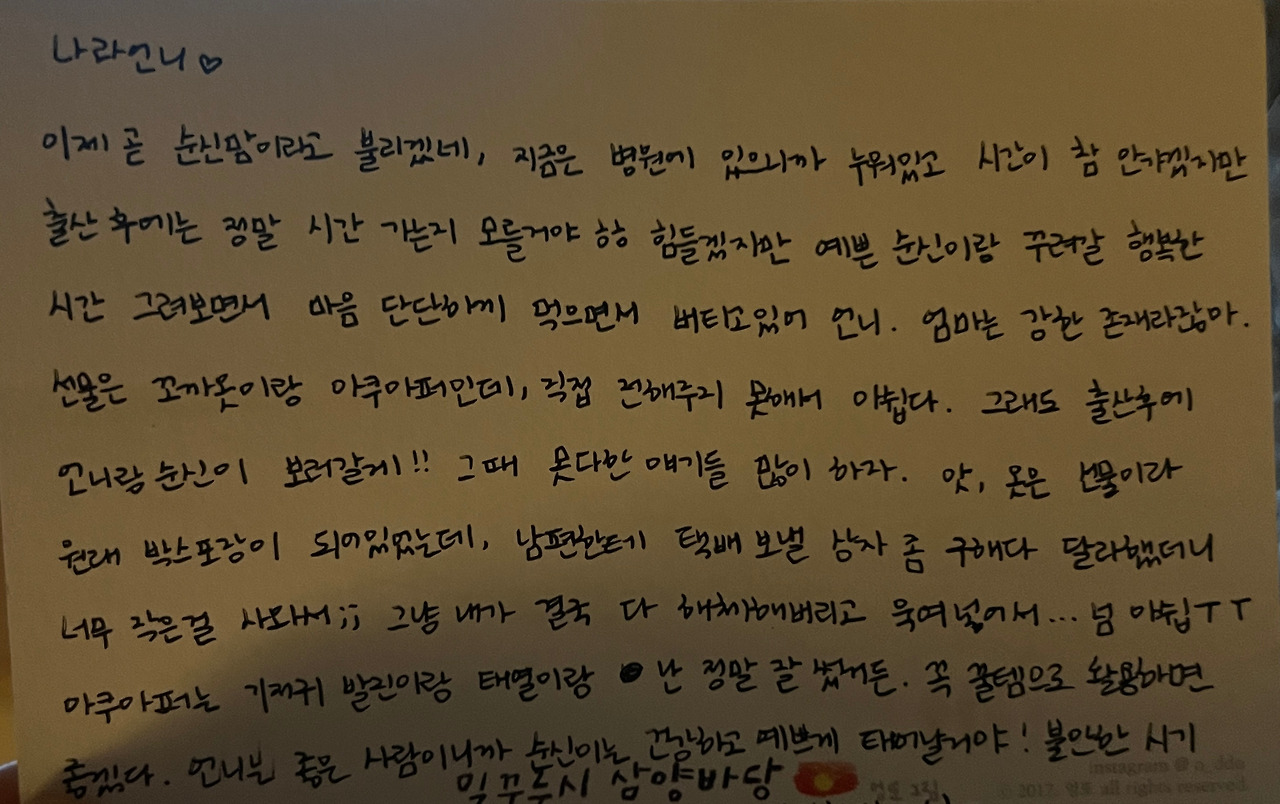 나라언니♡
이제 곧 순신맘이라고 불리겠네, 지금은 병원에 있으니까 누워있고 시간이 참 안가겠지만
출산 후에는 정말 시간 가는지 모를거야 ㅎㅎ 힘들겠지만 예쁜 순신이랑 꾸려갈 행복한
시간 그려보면서 마음 단단하게 먹으면서 버티고있어 언니. 엄마는 강한 존재라잖아.
선물은 꼬까옷이랑 아쿠아퍼인데, 직접 전해주지 못해서 아쉽다. 그래도 출산후에
언니랑 순신이 보러갈게!! 그때 못다한 얘기들 많이 하자. 앗, 옷은 선물이라
원래 박스포장이 되어있었는데, 남편한테 택배 보낼 상자 좀 구해다 달라했더니
너무 작은걸 사와서;; 그냥 내가 결국 다 해체해버리고 욱여넣어서... 넘 아쉽ㅜㅜ
아쿠아퍼는 기저귀 발진이랑 태열이랑 난 정말 잘 썼거든. 꼭 꿀템으로 활용하면
좋겠다. 언니분 좋은 사람이니까 순신이는 건강하고 예쁘게 태어날거야! 불안한 시기
삼양바당
instagram @ o_ddo
© 2017. all rights reserved.